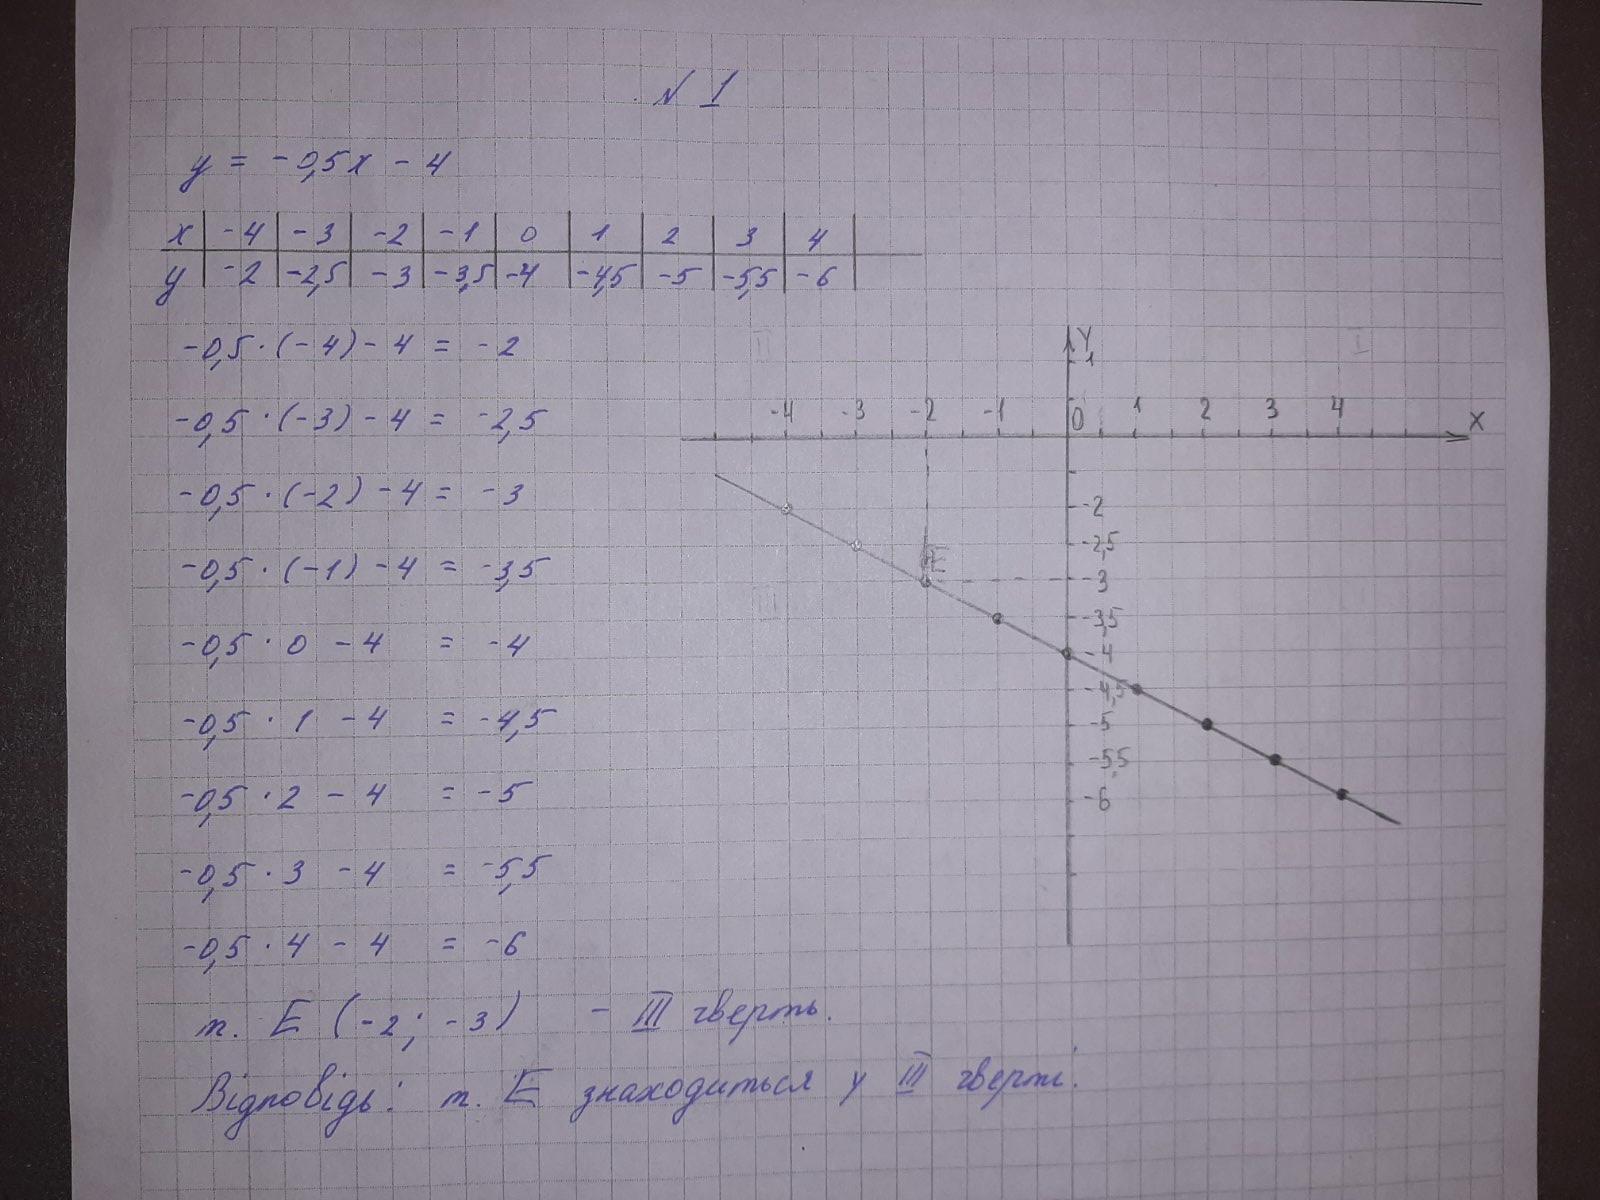 № 1
y = -0,5x - 4
x -4 -3 -2 -1 0 1 2 3 4
y -2 -2,5 -3 -3,5 -4 -4,5 -5 -5,5 -6
-0,5 · (-4) - 4 = -2
-0,5 · (-3) - 4 = -2,5
-0,5 · (-2) - 4 = -3
-0,5 · (-1) - 4 = -3,5
-0,5 · 0 - 4 = -4
-0,5 · 1 - 4 = -4,5
-0,5 · 2 - 4 = -5
-0,5 · 3 - 4 = -5,5
-0,5 · 4 - 4 = -6
II Y I
1
-4 -3 -2 -1 0 1 2 3 4 X
-2
-2,5
E
-3
III
-3,5
-4
-4,5
-5
-5,5
-6
т. E (-2; -3) - III чверть.
Відповідь: т. E знаходиться у III чверті.